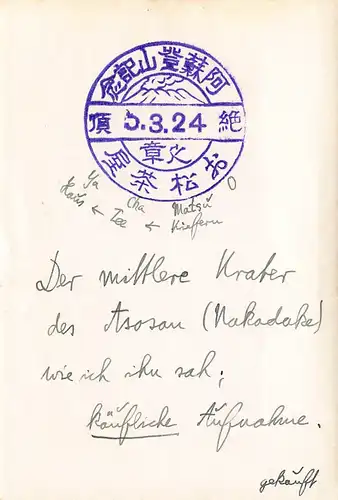 阿蘇登山記念
絶頂
5.3.24
火章
お松茶屋
Ya Cha Matsu O
Haus ← Tee ← Kiefern
Der mittlere Krater
des Asosan (Nakadake)
wie ich ihn sah;
käufliche Aufnahme.
gekauft